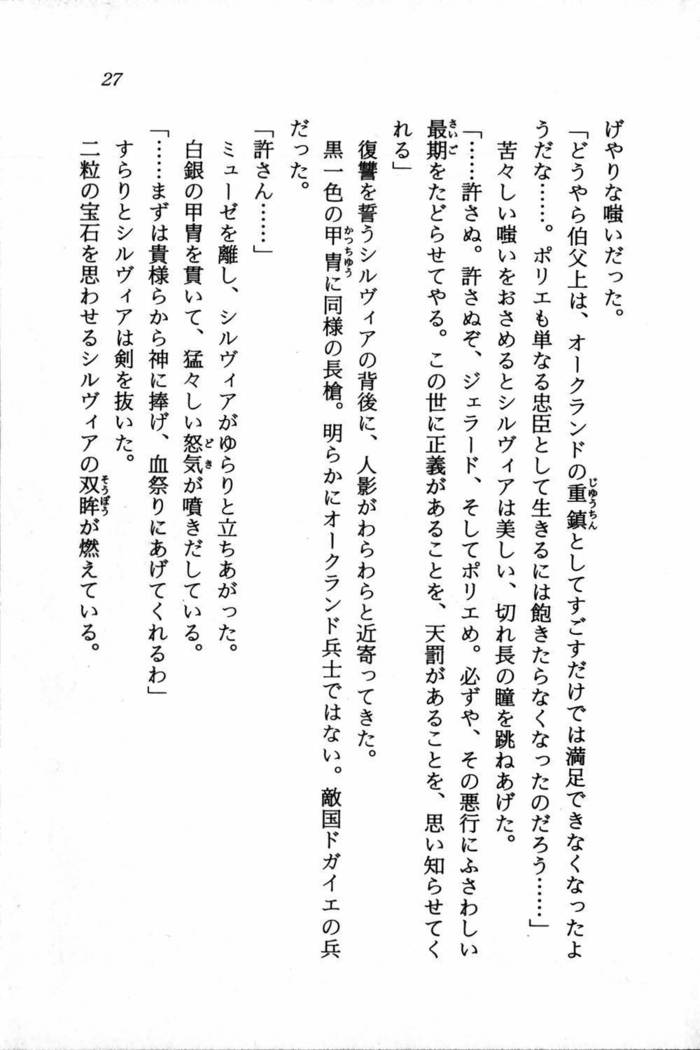 27
げやりな嗤いだった。
「どうやら伯父上は、オークランドの重鎮としてすごすだけでは満足できなくなったよ
うだな……。ポリエも単なる忠臣として生きるには飽きたらなくなったのだろう……」
苦々しい嗤いをおさめるとシルヴィアは美しい、切れ長の瞳を跳ねあげた。
「……許さぬ。許さぬぞ、ジェラード、そしてポリエめ。必ずや、その悪行にふさわしい
最期をたどらせてやる。この世に正義があることを、天罰があることを、思い知らせてく
れる」
復讐を誓うシルヴィアの背後に、人影がわらわらと近寄ってきた。
黒一色の甲冑に同様の長槍。明らかにオークランド兵士ではない。敵国ドガイエの兵
だった。
「許さん……」
ミューゼを離し、シルヴィアがゆらりと立ちあがった。
白銀の甲冑を貫いて、猛々しい怒気が噴きだしている。
「……まずは貴様らから神に捧げ、血祭りにあげてくれるわ」
すらりとシルヴィアは剣を抜いた。
二粒の宝石を思わせるシルヴィアの双眸が燃えている。